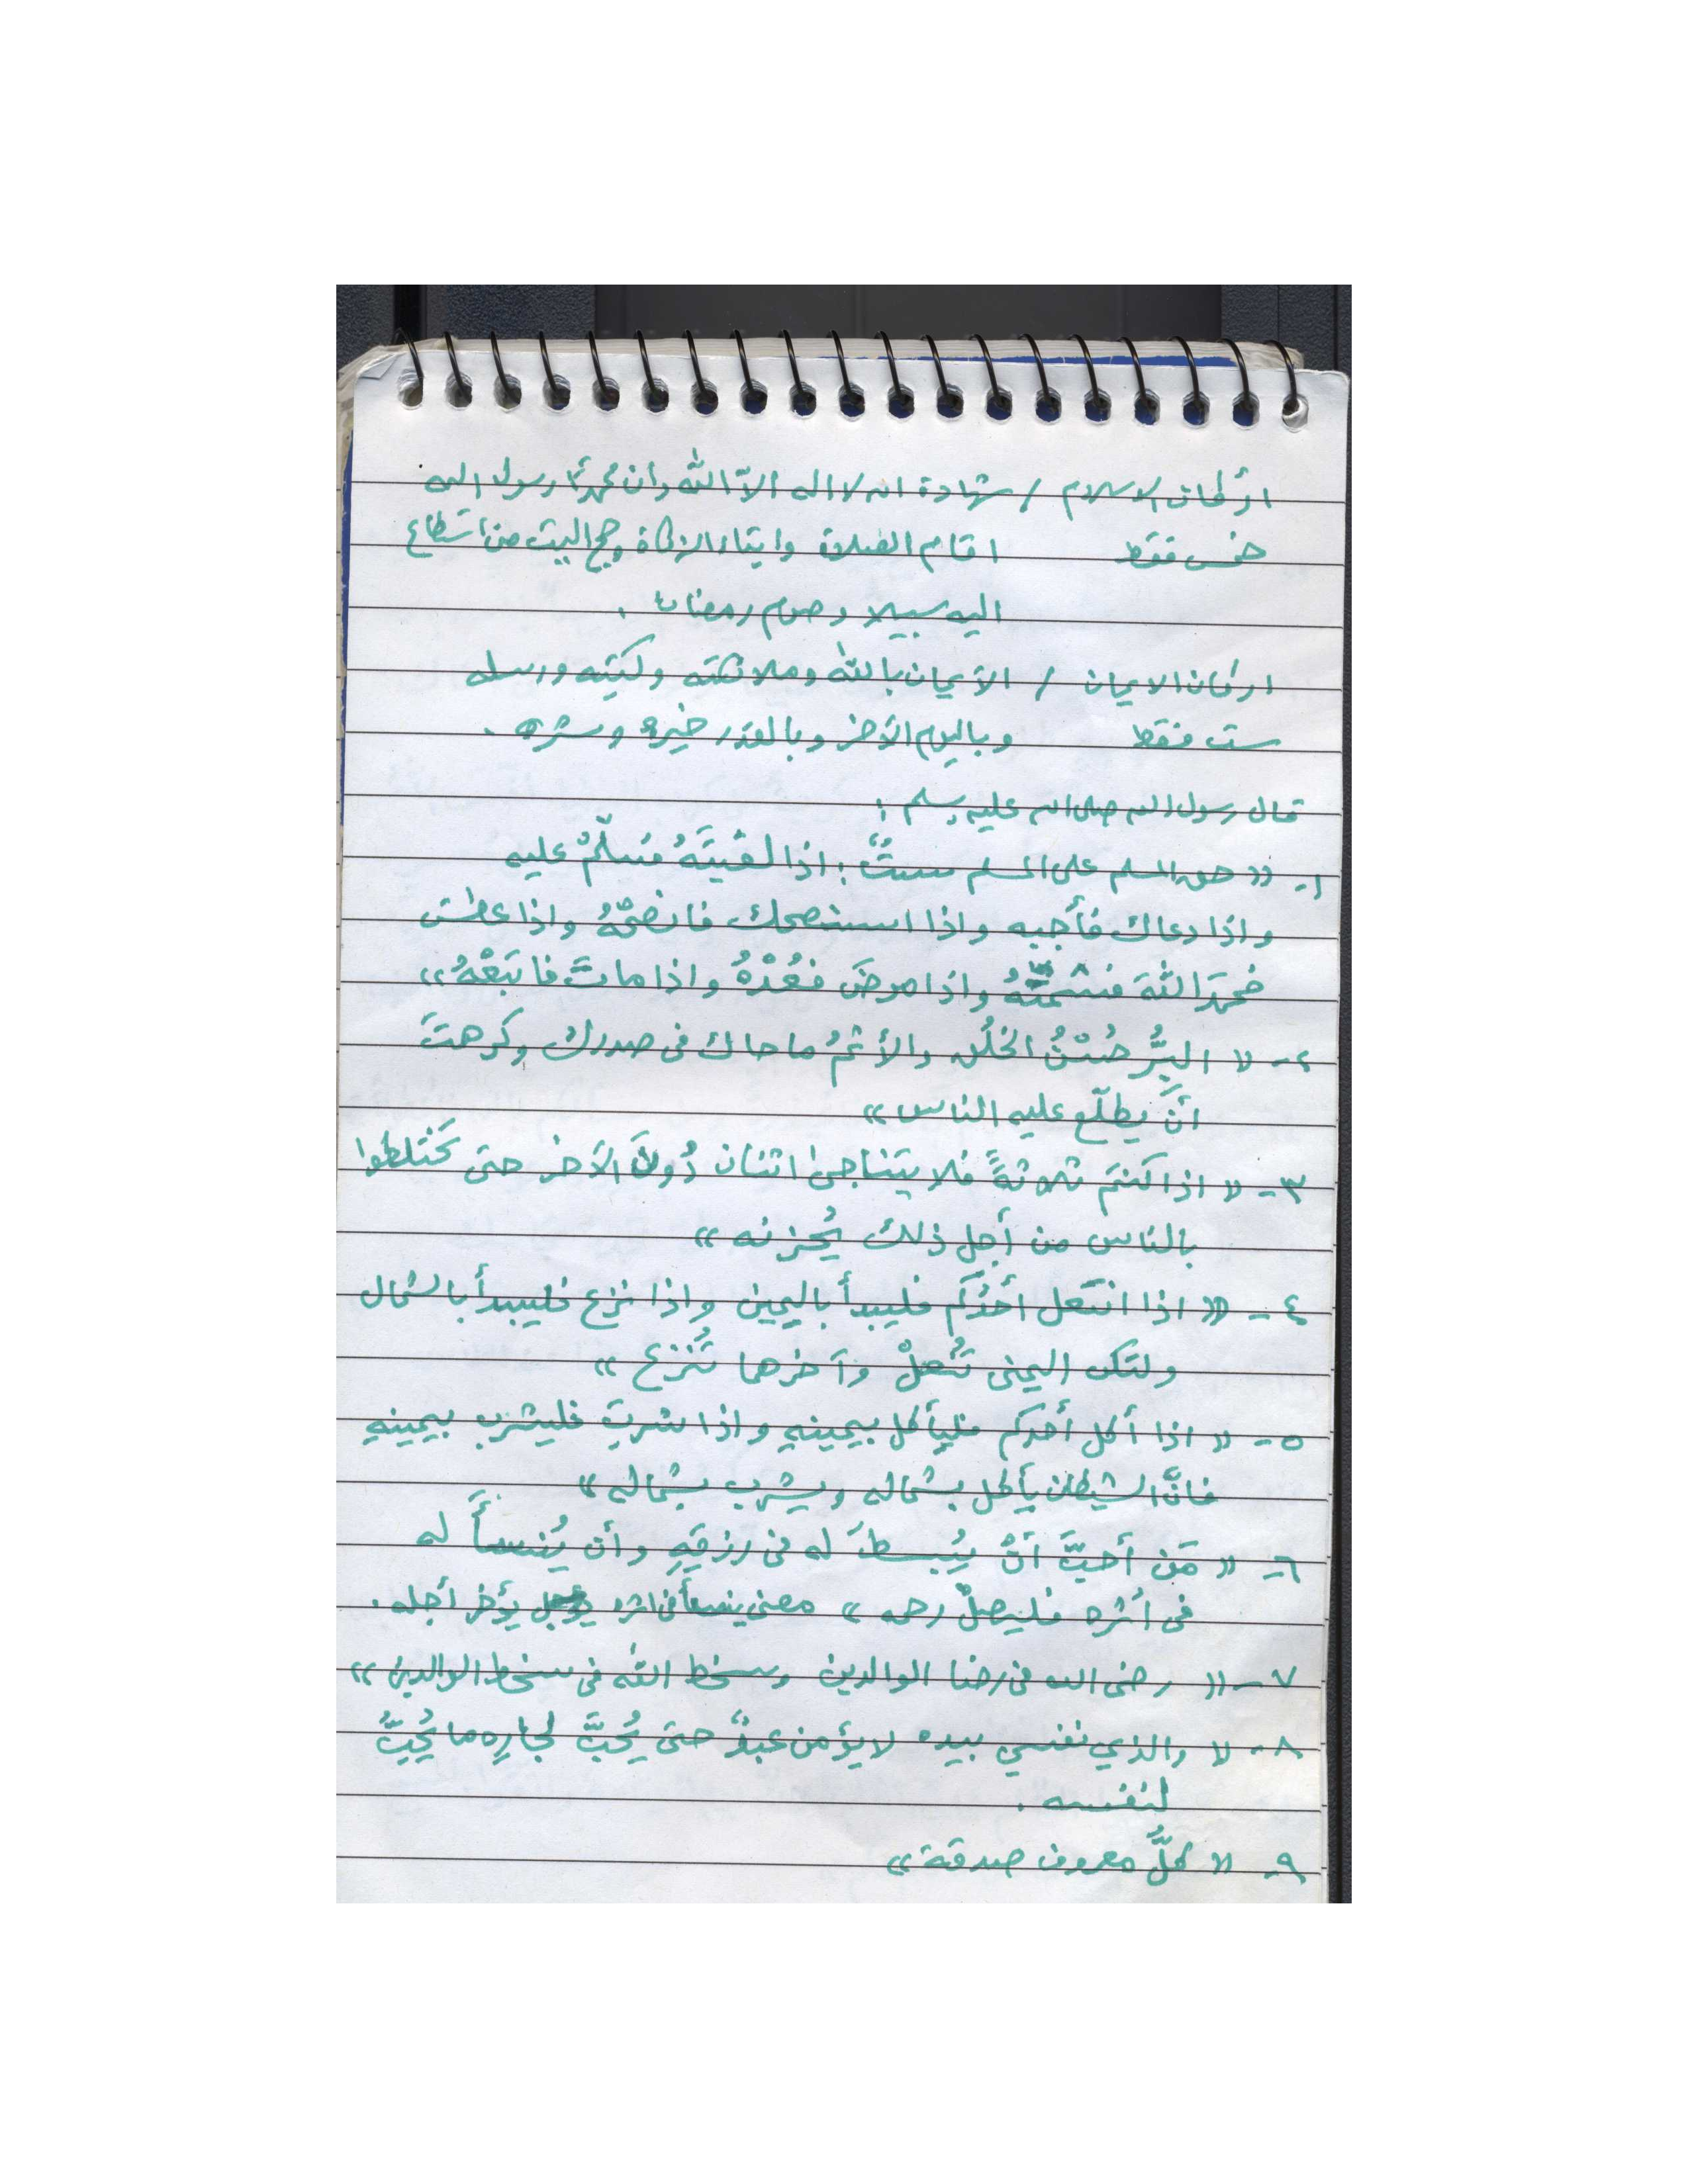 اركان الاسلام / شهادة ان لا اله الاّ الله وأن محمداً رسول الله
خمس فقط اقام الصلاة وايتاء الزكاة وحج البيت من استطاع
اليه سبيلا وصوم رمضان .
اركان الايمان / الأيمان بالله وملائكته وكتبه ورسله
ست فقط وباليوم الآخر وبالقدر خيره وشره .
قال رسول الله صلى الله عليه وسلم :
١- «حق المسلم على المسلم ستٌّ : اذا لقيتَهُ فسلّمْ عليه
واذا دعاك فأجبه واذا استنصحك فانصحْهُ واذا عطس
فحمدَ اللهَ فشمّتْهُ واذا مرضَ فعُدْهُ واذا ماتَ فاتبَعْهُ»
٢- « البِرُّ حُسْنُ الخُلُق والأثمُ ما حاك في صدرك وكرهتَ
أنْ يطلّع عليه الناس»
٣- « اذا كنتم ثلاثةً فلا يتناجى اثنان دُونَ الآخر حتى تختلطوا
بالناس من أجل ذلك يُحزنه »
٤- « اذا انتعل أحدُكم فليبدأ باليمين واذا نزع فليبدأ بالشمال
ولتكن اليمنى تُنعلْ وآخرهما تُنزع »
٥- « اذا أكل أحدكم فليأكل بيمينهِ واذا شربَ فليشرب بيمينهِ
فانَّ الشيطان يأكل بشماله ويشرب بشماله »
٦- « مَن أحبَّ أنْ يُبسطَ له في رزقِهِ وأن يُنسأَ له
في أثره فليصلْ رحمه » معنى ينسأ في اثره يؤخر أجله .
٧- « رضى الله في رضا الوالدين وسخط الله في سخط الوالدين »
٨- « والذي نفسي بيده لا يؤمن عبدٌ حتى يُحبَّ لجارِه ما يُحِبُّ
لنفسه .
٩- « كلُّ معروف صدقة »